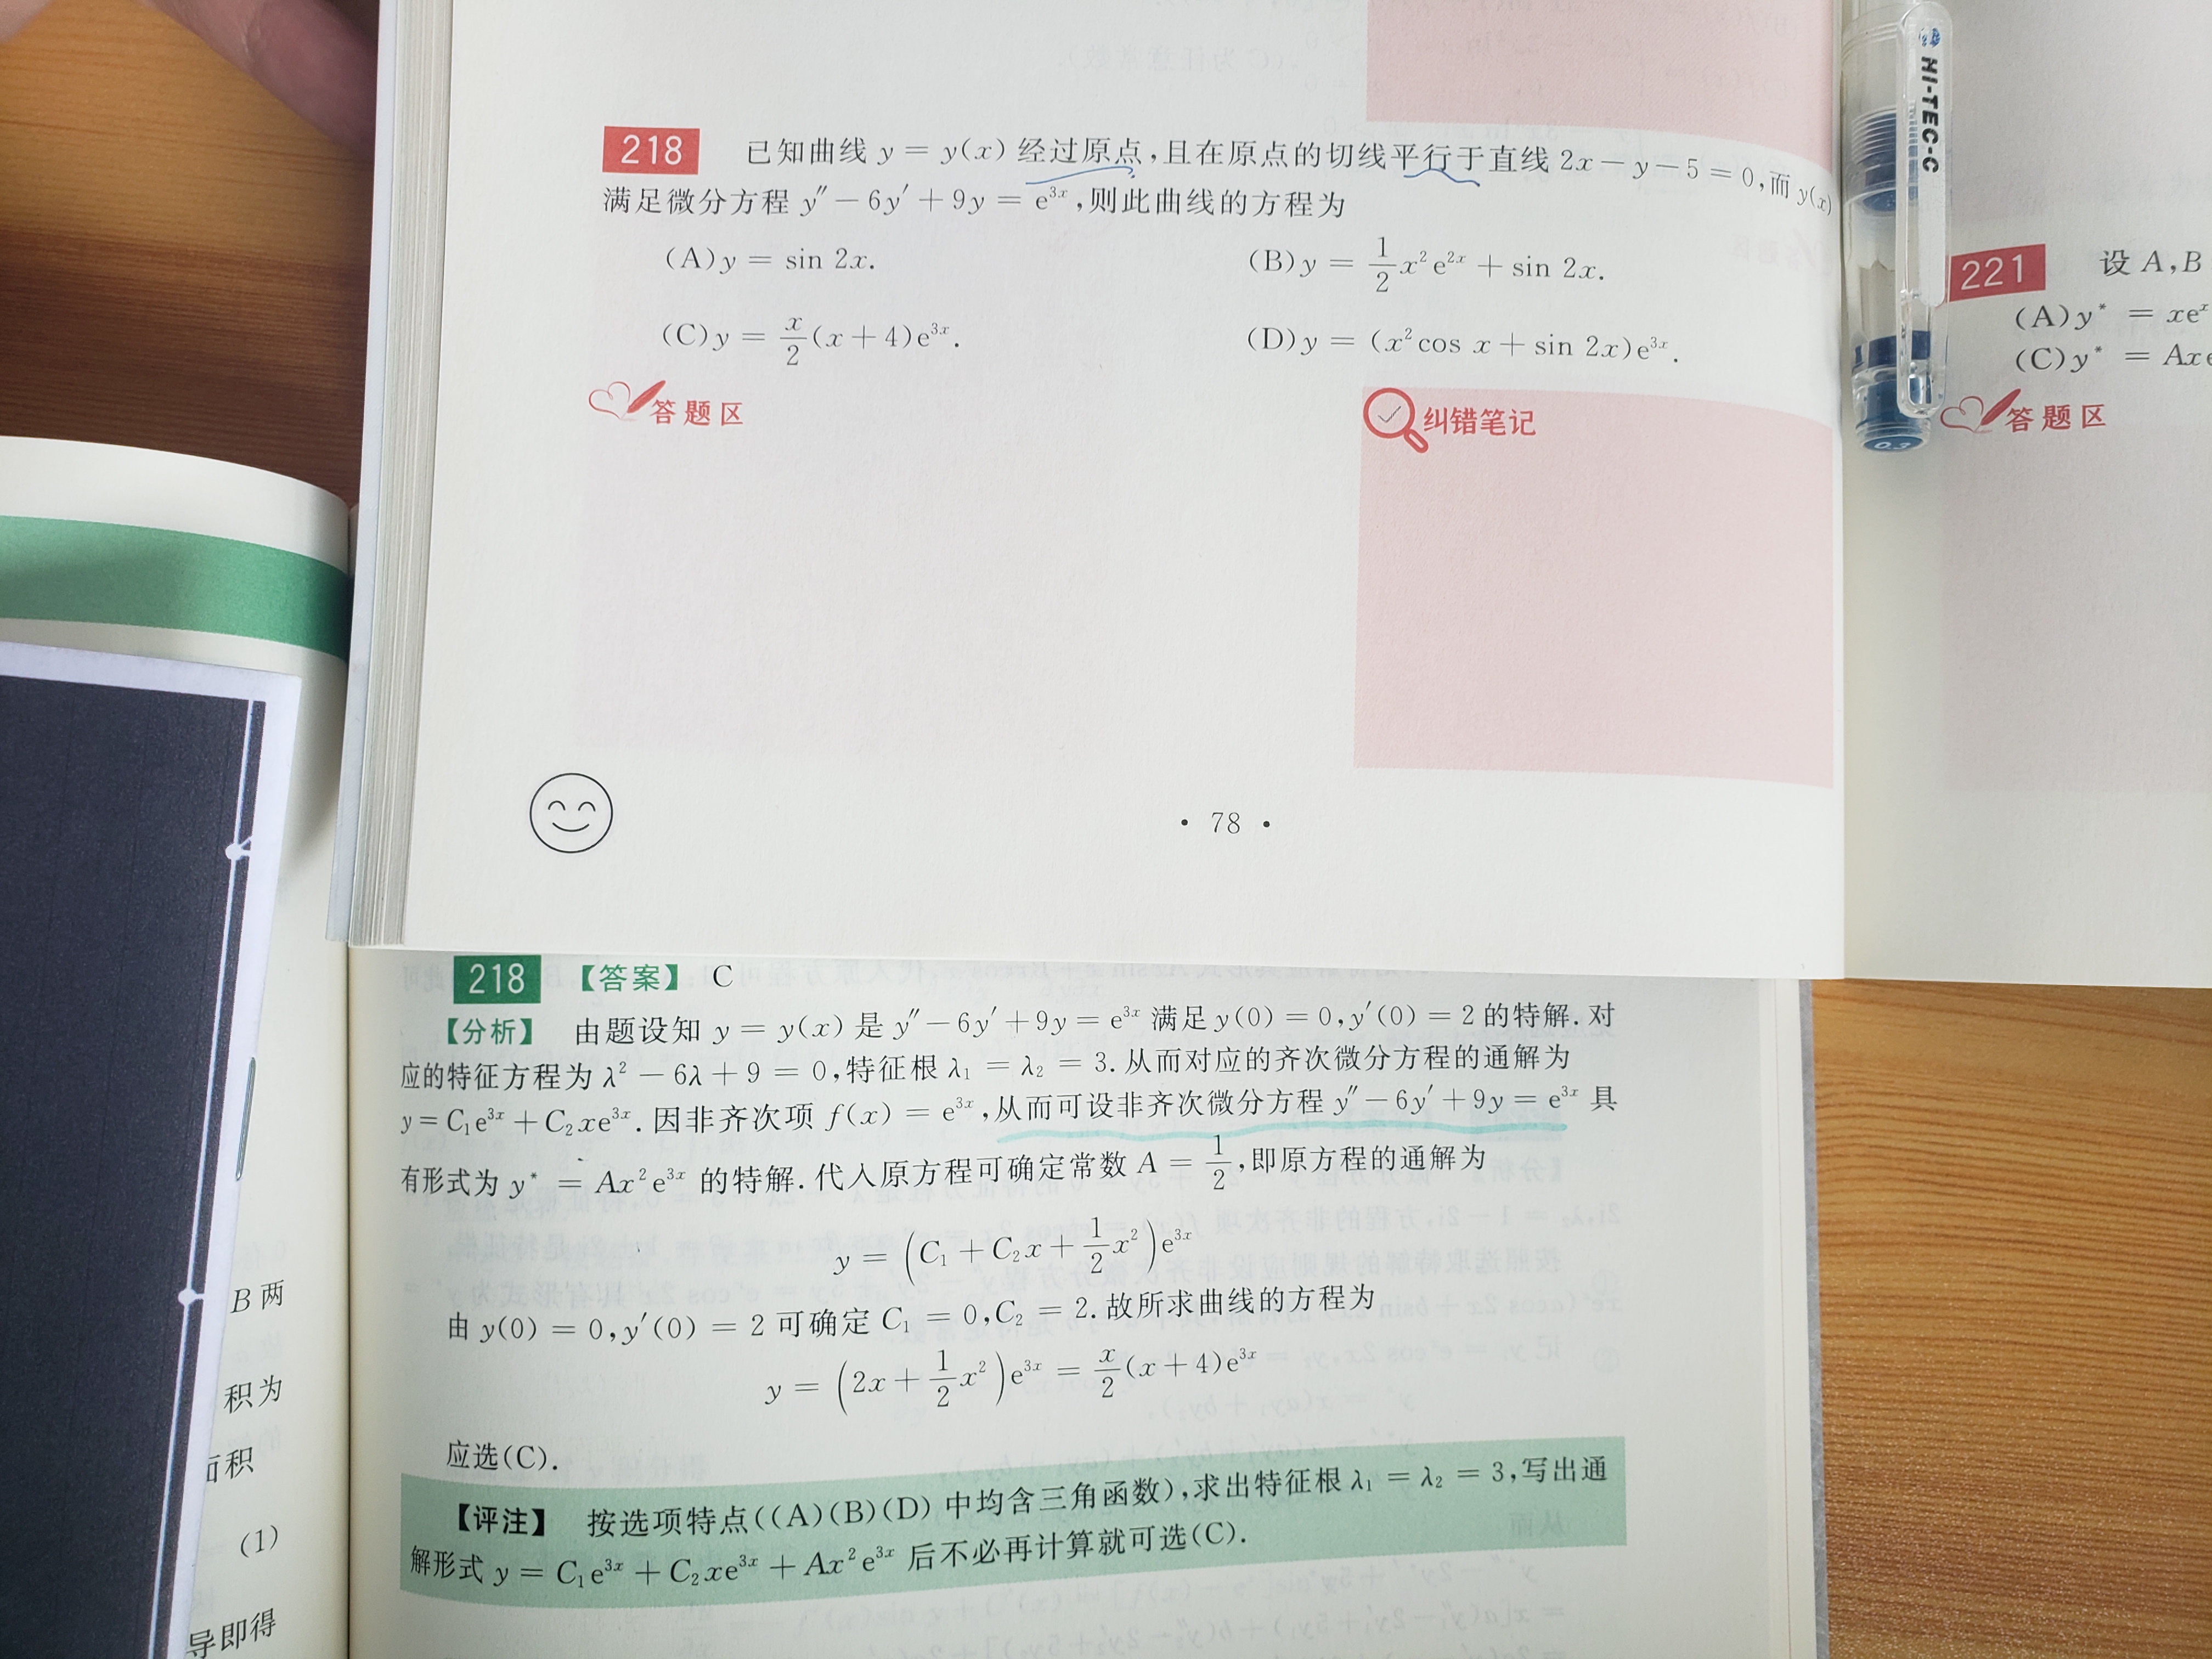 218 已知曲线 y = y(x) 经过原点,且在原点的切线平行于直线 2x－y－5 = 0,而 y(x)
满足微分方程 y″－6y′＋9y = e³ˣ,则此曲线的方程为
(A) y = sin 2x.
(B) y = 1/2 x²e²ˣ + sin 2x.
(C) y = x/2 (x＋4)e³ˣ.
(D) y = (x²cos x＋sin 2x)e³ˣ.
答题区
纠错笔记
· 78 ·
HI-TEC-C
0.3
221 设 A,B
(A) y* = xeˣ
(C) y* = Ax
答题区
218 【答案】 C
【分析】 由题设知 y = y(x) 是 y″－6y′＋9y = e³ˣ 满足 y(0) = 0,y′(0) = 2 的特解. 对
应的特征方程为 λ²－6λ＋9 = 0,特征根 λ₁ = λ₂ = 3. 从而对应的齐次微分方程的通解为
y = C₁e³ˣ＋C₂xe³ˣ. 因非齐次项 f(x) = e³ˣ,从而可设非齐次微分方程 y″－6y′＋9y = e³ˣ 具
有形式为 y* = Ax²e³ˣ 的特解. 代入原方程可确定常数 A = 1/2,即原方程的通解为
y = (C₁＋C₂x＋1/2 x²)e³ˣ
由 y(0) = 0,y′(0) = 2 可确定 C₁ = 0,C₂ = 2. 故所求曲线的方程为
y = (2x＋1/2 x²)e³ˣ = x/2 (x＋4)e³ˣ
应选(C).
【评注】 按选项特点((A)(B)(D) 中均含三角函数),求出特征根 λ₁ = λ₂ = 3,写出通
解形式 y = C₁e³ˣ＋C₂xe³ˣ＋Ax²e³ˣ 后不必再计算就可选(C).
B 两
积为
面积
(1)
导即得